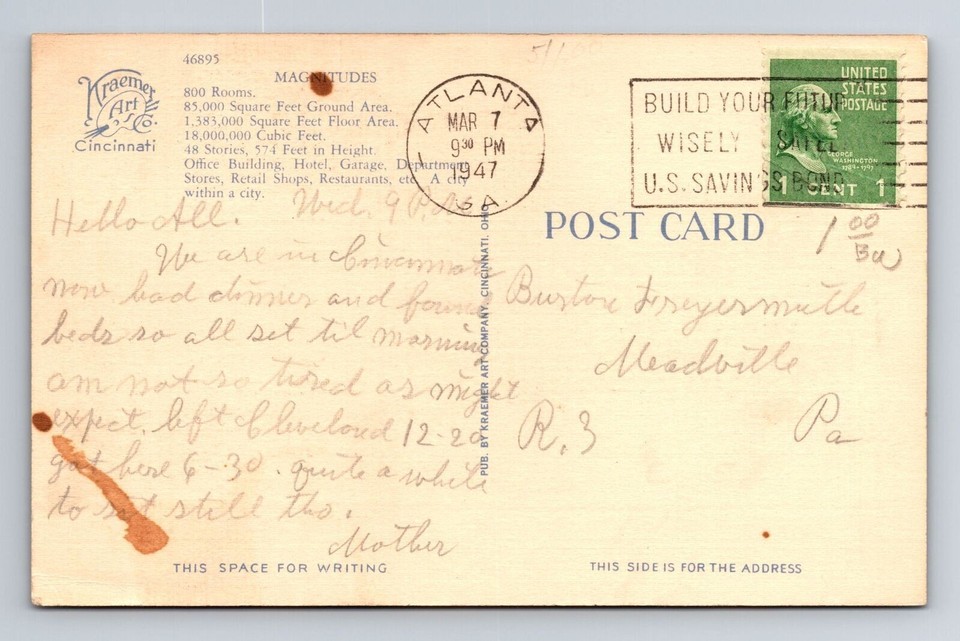 46895
MAGNITUDES
800 Rooms.
85,000 Square Feet Ground Area.
1,383,000 Square Feet Floor Area.
18,000,000 Cubic Feet.
48 Stories, 574 Feet in Height.
Office Building, Hotel, Garage, Department
Stores, Retail Shops, Restaurants, etc. A city
within a city.
Kraemer
Art
Co.
Cincinnati
ATLANTA
MAR 7
9 30 PM
1947
GA.
BUILD YOUR FUTUR
WISELY SAFEL
U.S. SAVINGS BOND
UNITED
STATES
POSTAGE
GEORGE
WASHINGTON
1789-1797
1 CENT 1
POST CARD
1 00
Hello All. Wed. 9 P.M.
We are in Cincinnati
now, had dinner and found
beds so all set til morning
am not so tired as might
expect. left Cleveland 12-20
got here 6-30. quite a while
to set still tho.
Mother
PUB. BY KRAEMER ART COMPANY, CINCINNATI, OHIO
Burton Freyermuthe
Meadville
R. 3 Pa
THIS SPACE FOR WRITING
THIS SIDE IS FOR THE ADDRESS